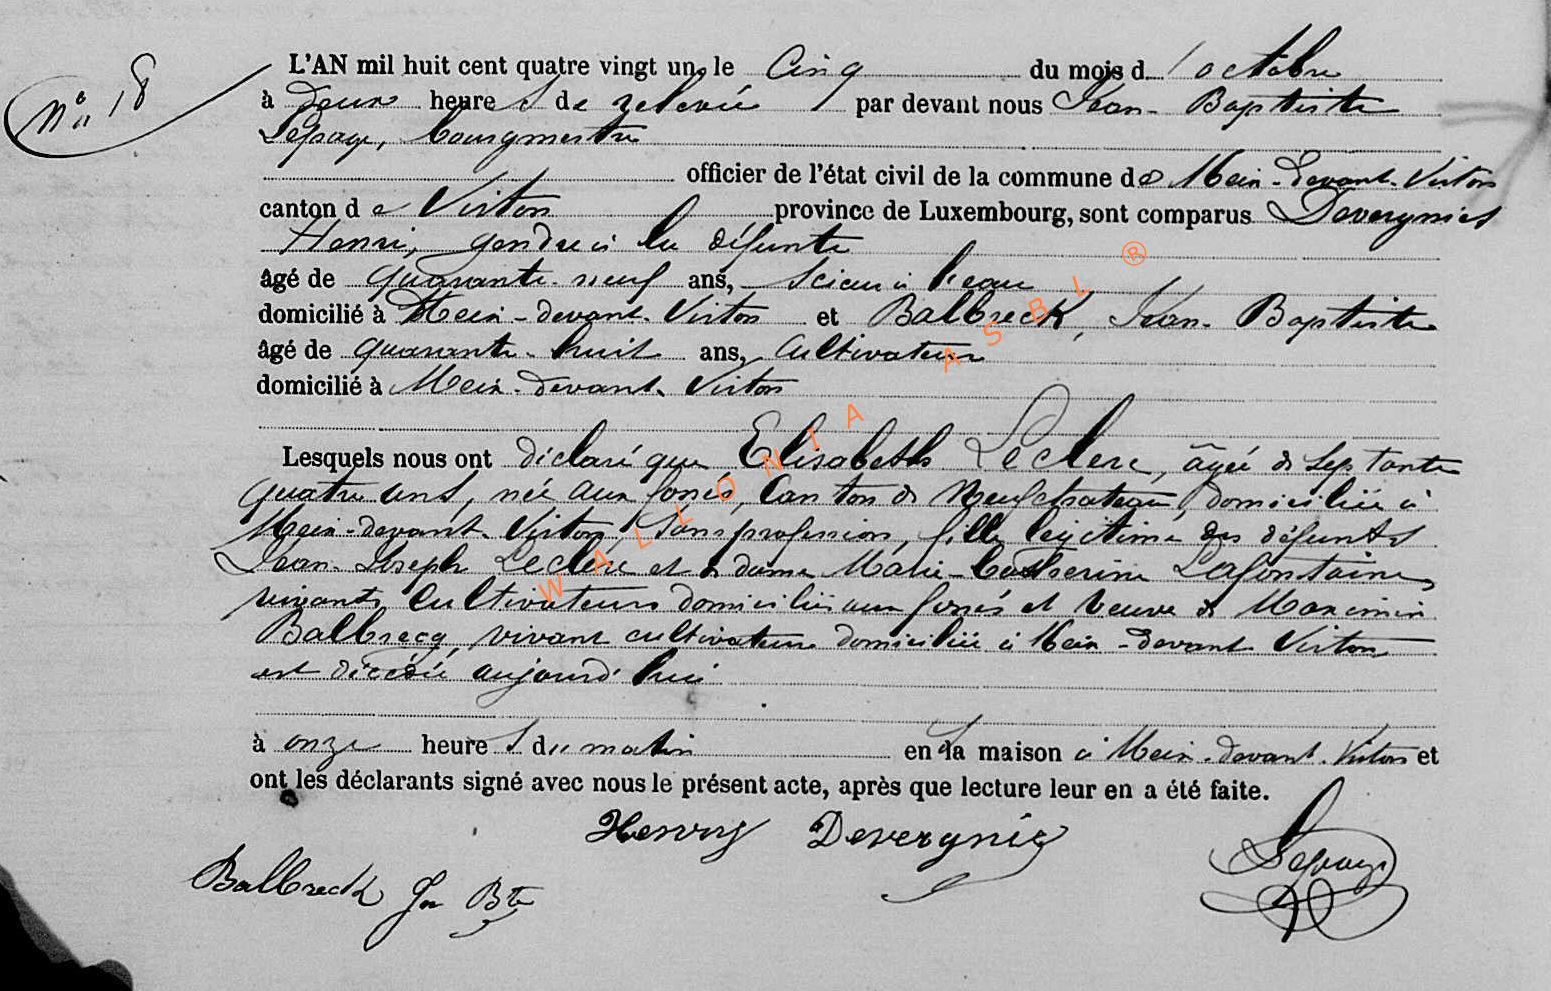 N° 18
L'AN mil huit cent quatre vingt un, le Cinq du mois d'octobre
à deux heures de relevée par devant nous Jean-Baptiste
Lepage, bourgmestre
officier de l'état civil de la commune de Meix-devant-Virton
canton de Virton province de Luxembourg, sont comparus Devergnies
Henri, gendre à la défunte
âgé de quarante-neuf ans, Scieur à l'eau
domicilié à Meix-devant-Virton et Balbreck, Jean-Baptiste
âgé de quarante-huit ans, Cultivateur
domicilié à Meix-devant-Virton
Lesquels nous ont déclaré que Elisabeth Leclerc, âgée de septante
quatre ans, née aux fossés, Canton de Neufchateau, domiciliée à
Meix-devant-Virton, sans profession, fille légitime des défunts
Jean-Joseph Leclerc et de dame Marie-Catherine Lafontaine,
vivants cultivateurs domiciliés aux fossés et veuve de Maximin
Balbrecq, vivant cultivateur domicilié à Meix-devant-Virton
est décédée aujourd'hui
à onze heures du matin en sa maison à Meix-devant-Virton et
ont les déclarants signé avec nous le présent acte, après que lecture leur en a été faite.
Henry Devergnie
Lepage
Balbreck Jn Bte
WALLONIA ASBL ®